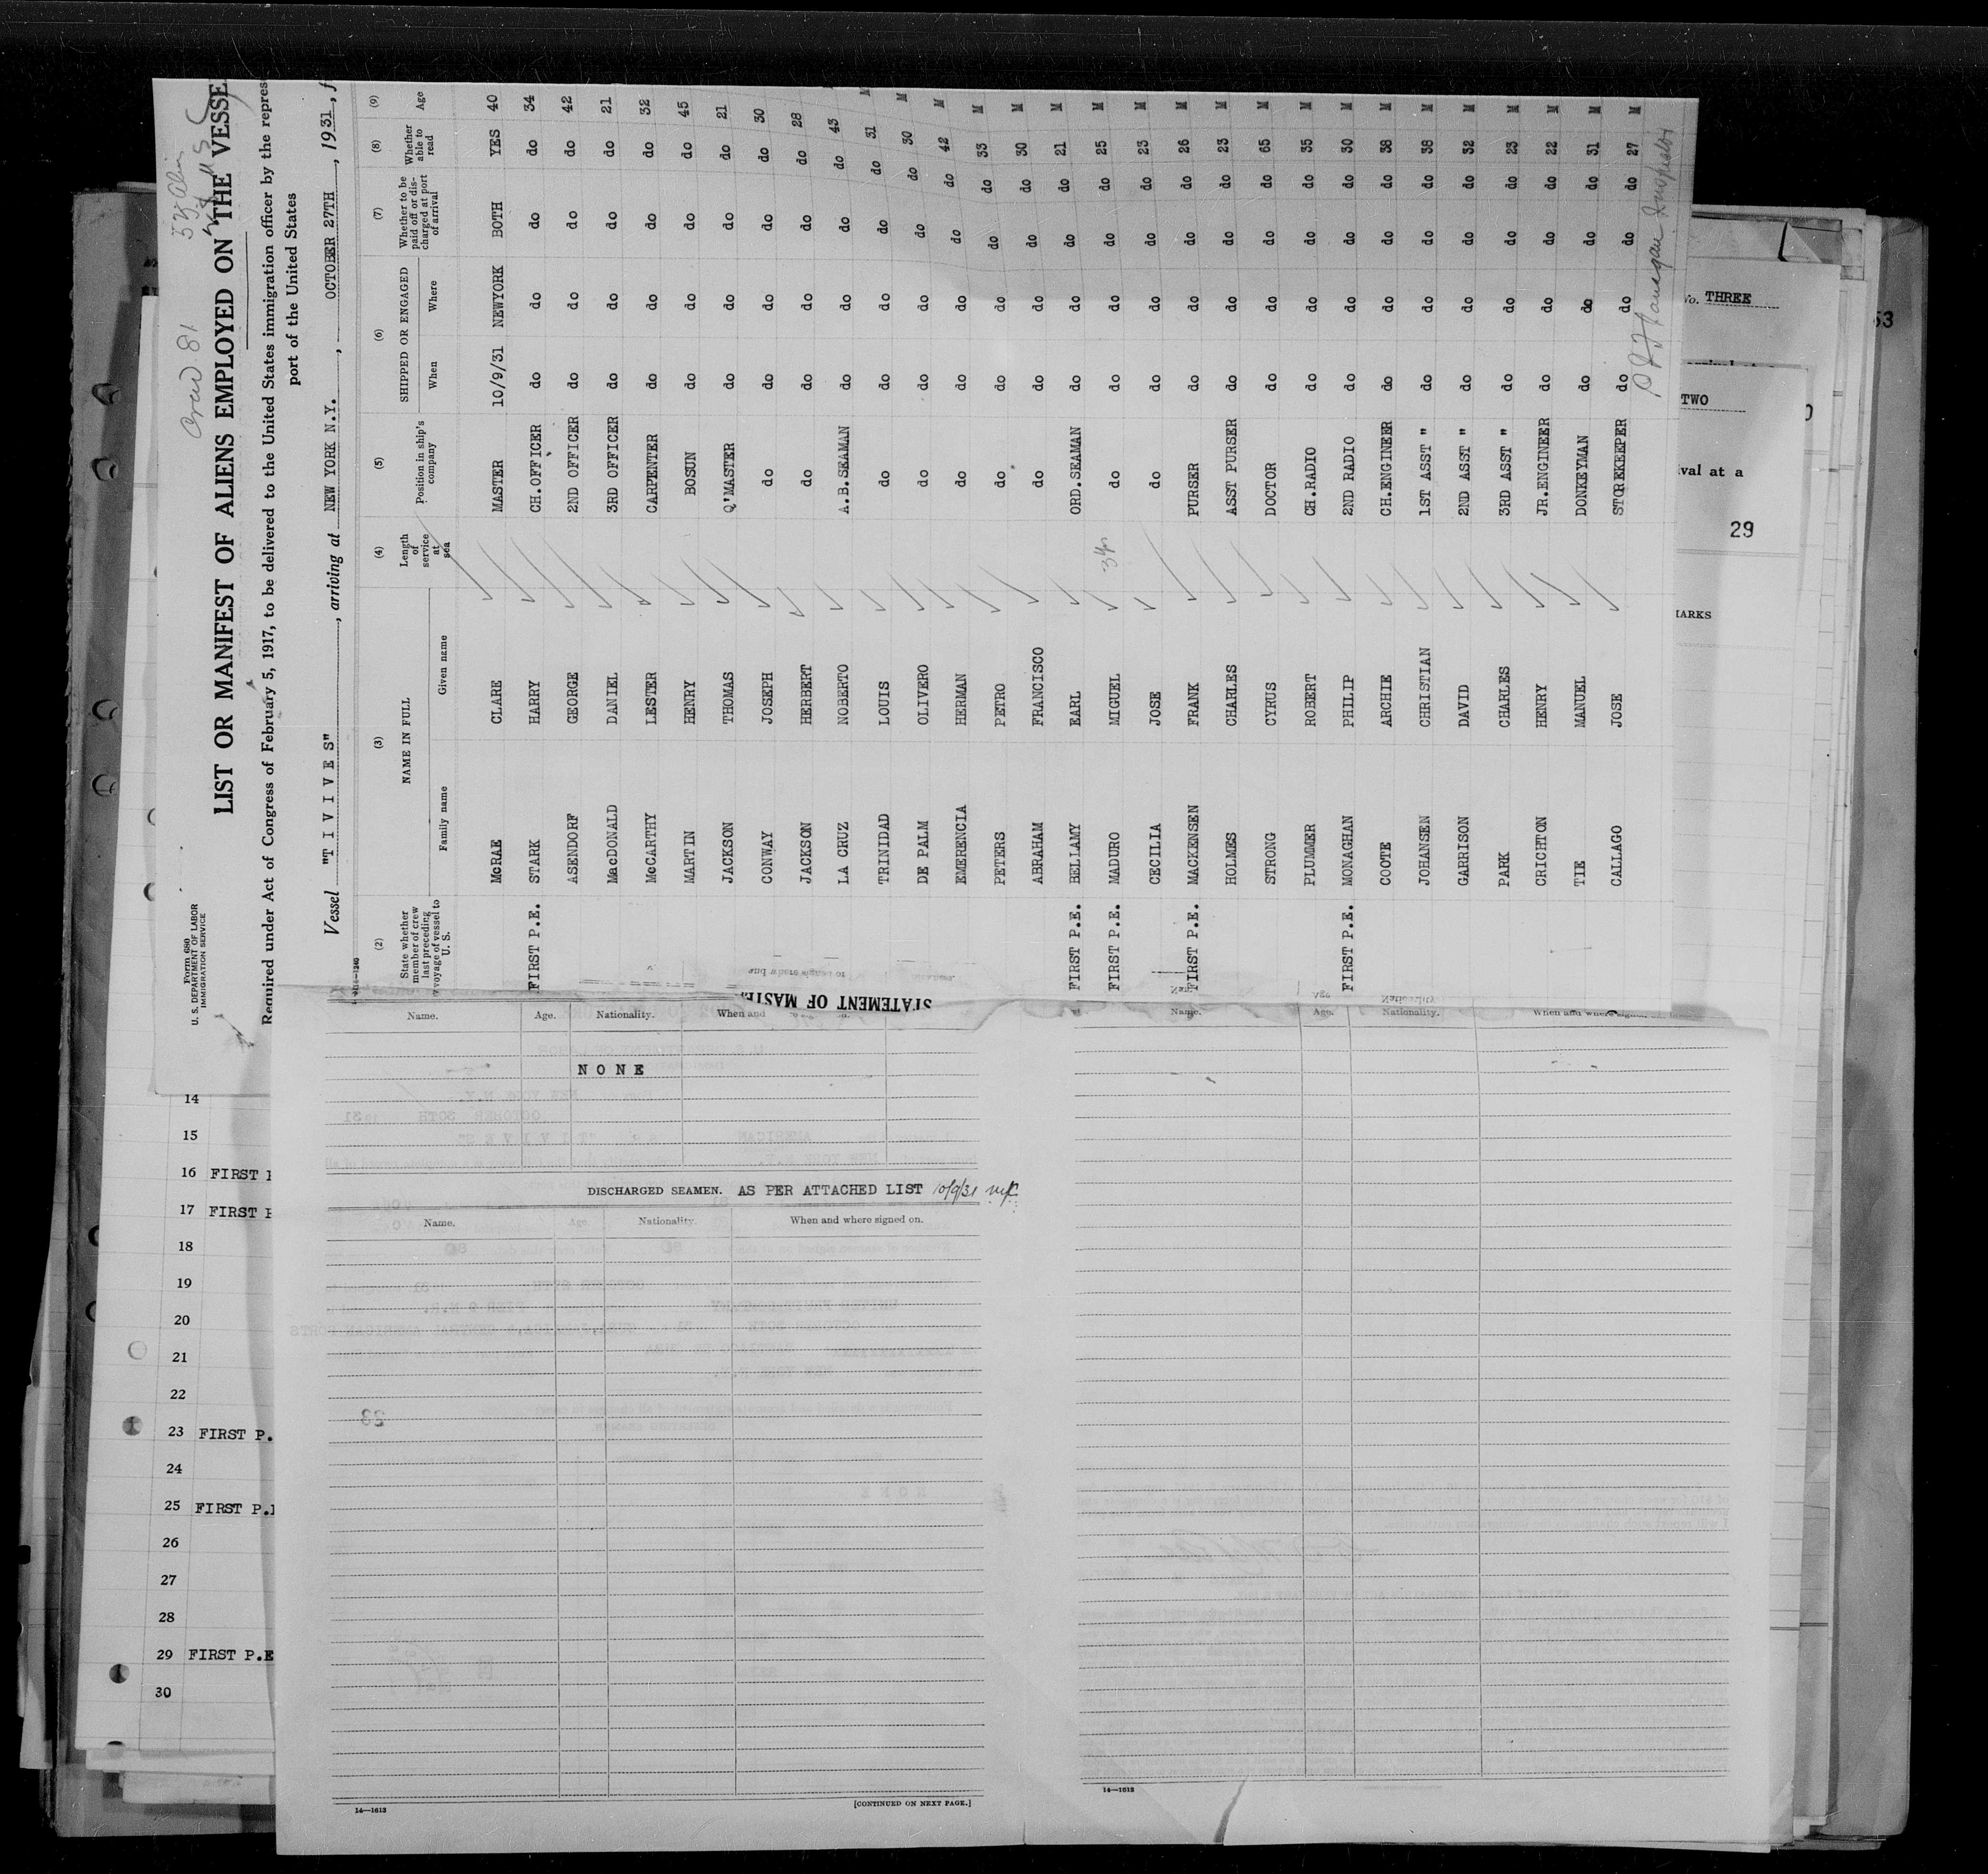 Form 680
U. S. DEPARTMENT OF LABOR
IMMIGRATION SERVICE
Crew 81
LIST OR MANIFEST OF ALIENS EMPLOYED ON THE VESSE
Required under Act of Congress of February 5, 1917, to be delivered to the United States immigration officer by the repres
port of the United States
Vessel "T I V I V E S", arriving at NEW YORK N.Y., OCTOBER 27TH, 1931, f
(2) (3) (4) (5) (6) (7) (8) (9)
State whether member of crew last preceding voyage of vessel to U. S. NAME IN FULL Family name Given name Length of service at sea Position in ship's company SHIPPED OR ENGAGED When Where Whether to be paid off or discharged at port of arrival Whether able to read Age
McRAE CLARE MASTER 10/9/31 NEWYORK BOTH YES 40
FIRST P.E. STARK HARRY CH.OFFICER do do do do 34
ASENDORF GEORGE 2ND OFFICER do do do do 42
MacDONALD DANIEL 3RD OFFICER do do do do 21
McCARTHY LESTER CARPENTER do do do do 32
MARTIN HENRY BOSUN do do do do 45
JACKSON THOMAS Q'MASTER do do do do 21
CONWAY JOSEPH do do do do do 30
JACKSON HERBERT do do do do do 28
LA CRUZ NOBERTO A.B.SEAMAN do do do do 43
TRINIDAD LOUIS do do do do do 31 M
DE PALM OLIVERO do do do do do 30 M
EMERENCIA HERMAN do do do do do 42 M
PETERS PETRO do do do do do 33 M
ABRAHAM FRANCISCO do do do do do 30 M
FIRST P.E. BELLAMY EARL ORD.SEAMAN do do do do 21 M
FIRST P.E. MADURO MIGUEL 3 yrs do do do do do 25 M
CECILIA JOSE do do do do do 23 M
FIRST P.E. MACKENSEN FRANK PURSER do do do do 26 M
HOLMES CHARLES ASST PURSER do do do do 23 M
STRONG CYRUS DOCTOR do do do do 65 M
PLUMMER ROBERT CH.RADIO do do do do 35 M
FIRST P.E. MONAGHAN PHILIP 2ND RADIO do do do do 30 M
COOTE ARCHIE CH.ENGINEER do do do do 38 M
JOHANSEN CHRISTIAN 1ST ASST " do do do do 38 M
GARRISON DAVID 2ND ASST " do do do do 32 M
PARK CHARLES 3RD ASST " do do do do 23 M
CRICHTON HENRY JR.ENGINEER do do do do 22 M
TIE MANUEL DONKEYMAN do do do do 31 M
CALLAGO JOSE STOREKEEPER do do do do 27 M
No. THREE
53
TWO
val at a
29
MARKS
STATEMENT OF MAST
Name. Age. Nationality. When and
N O N E
DISCHARGED SEAMEN. AS PER ATTACHED LIST 10/9/31
Name. Age. Nationality. When and where signed on.
14—1613
[CONTINUED ON NEXT PAGE.]
Name. Age. Nationality. When and where signed
14—1613
14
15
16 FIRST
17 FIRST
18
19
20
21
22
23 FIRST P.
24
25 FIRST P.
26
27
28
29 FIRST P.E
30